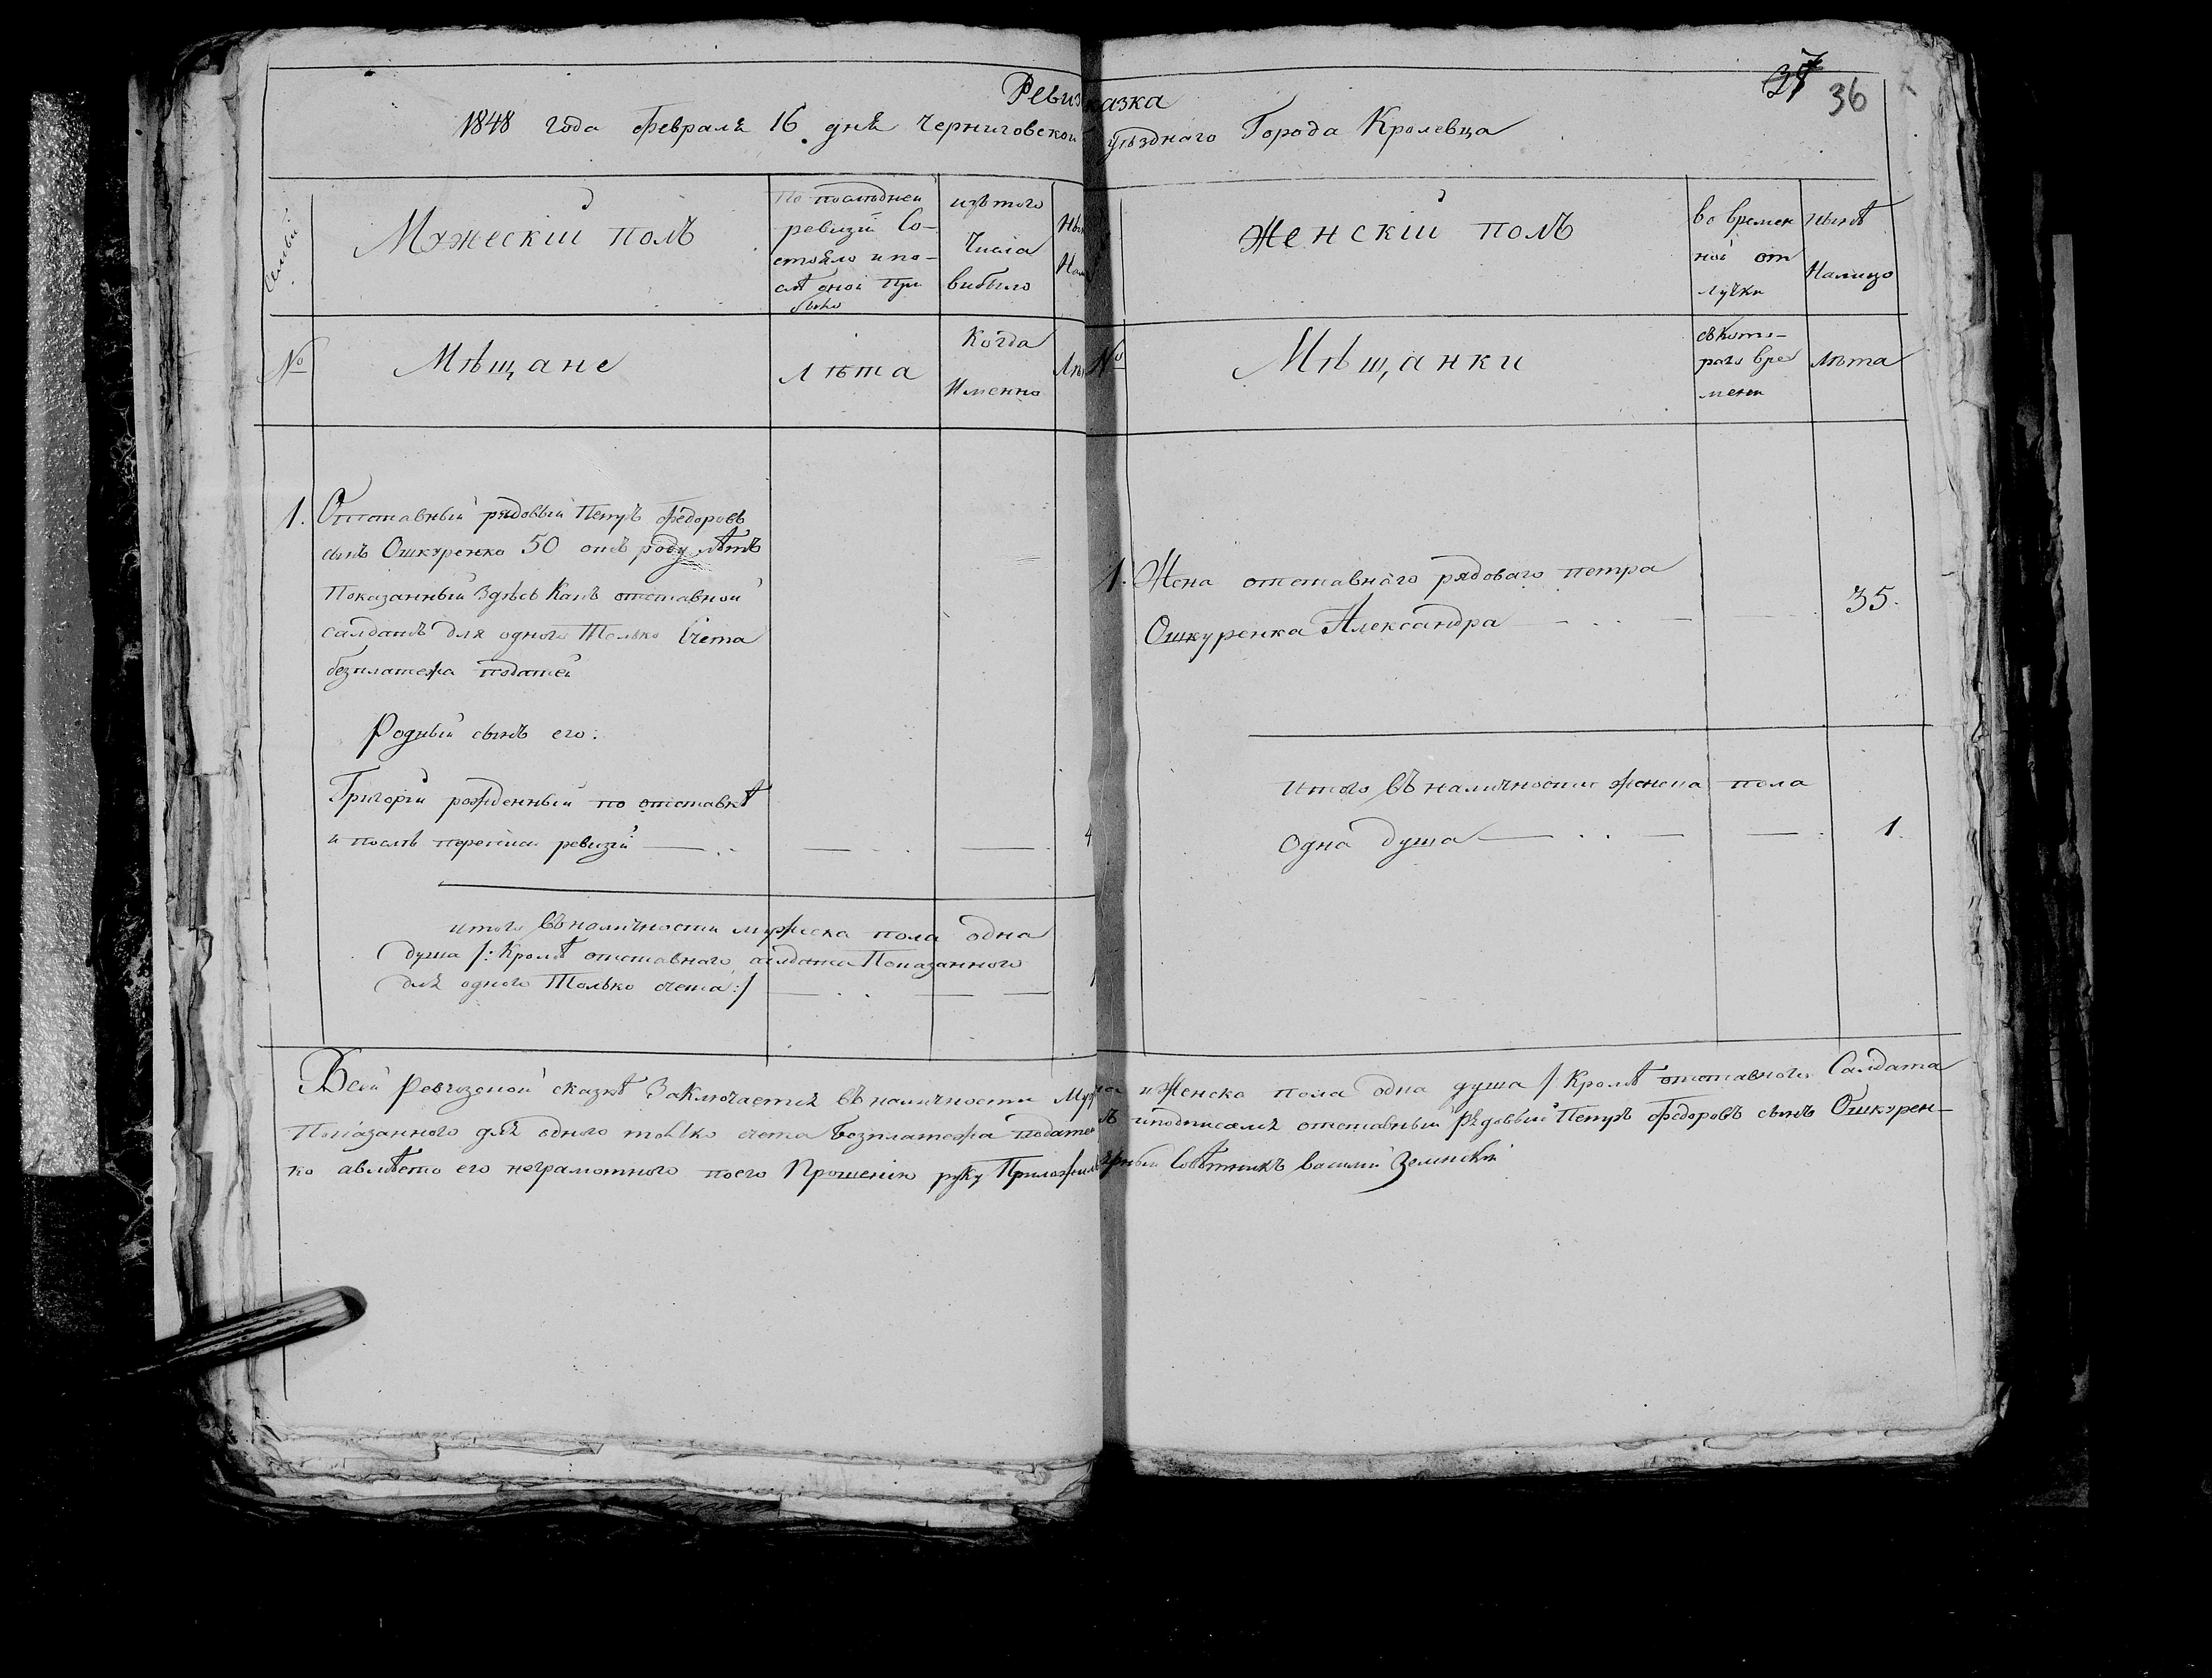 37 36
Ревиз казка
1848 года февраля 16 дня Черниговской уѣзднаго Города Кролевца
Семьи
Мужескій полъ
По послѣдней
ревизіи Со-
стояло и по-
слѣ оной при
было
изъ того
Числа
выбыло
№
Мѣщане
Лѣта
Когда
Именно
1. Отставный рядовый Петръ Федоровъ
сынъ Ошкуренко 50 отъ роду лѣтъ
Показанный Здѣсь Какъ отставной
салдатъ для одного Только Счета
безплатежа податей
Родный сынъ его:
Григорій рожденный по отставкѣ
и послѣ переписи ревизіи 4
итого въ наличности мужеска пола одна
душа /: Кромѣ отставного салдата Показанного
для одного Только счета :/ 1
Женскій полъ
во времен
ной от
лучки
нынѣ
Налицо
№
Мѣщанки
съ кото-
раго вре
мени
Лѣта
1. Жена отставнаго рядоваго петра
Ошкуренка Александра 35.
Итого въ наличности женска пола
одна душа 1.
Всей ревизской сказкѣ Заключается въ наличности Муж ка и Женска пола одна душа /: Кромѣ отставного Салдата
Показанного для одного только счета безплатежа податей иподписался отставный Рядовый Петръ Федоровъ сынъ Ошкурен-
ко авмѣсто его неграмотного поего Прошенію руку Приложилъ Совѣтникъ василий Зелинскій